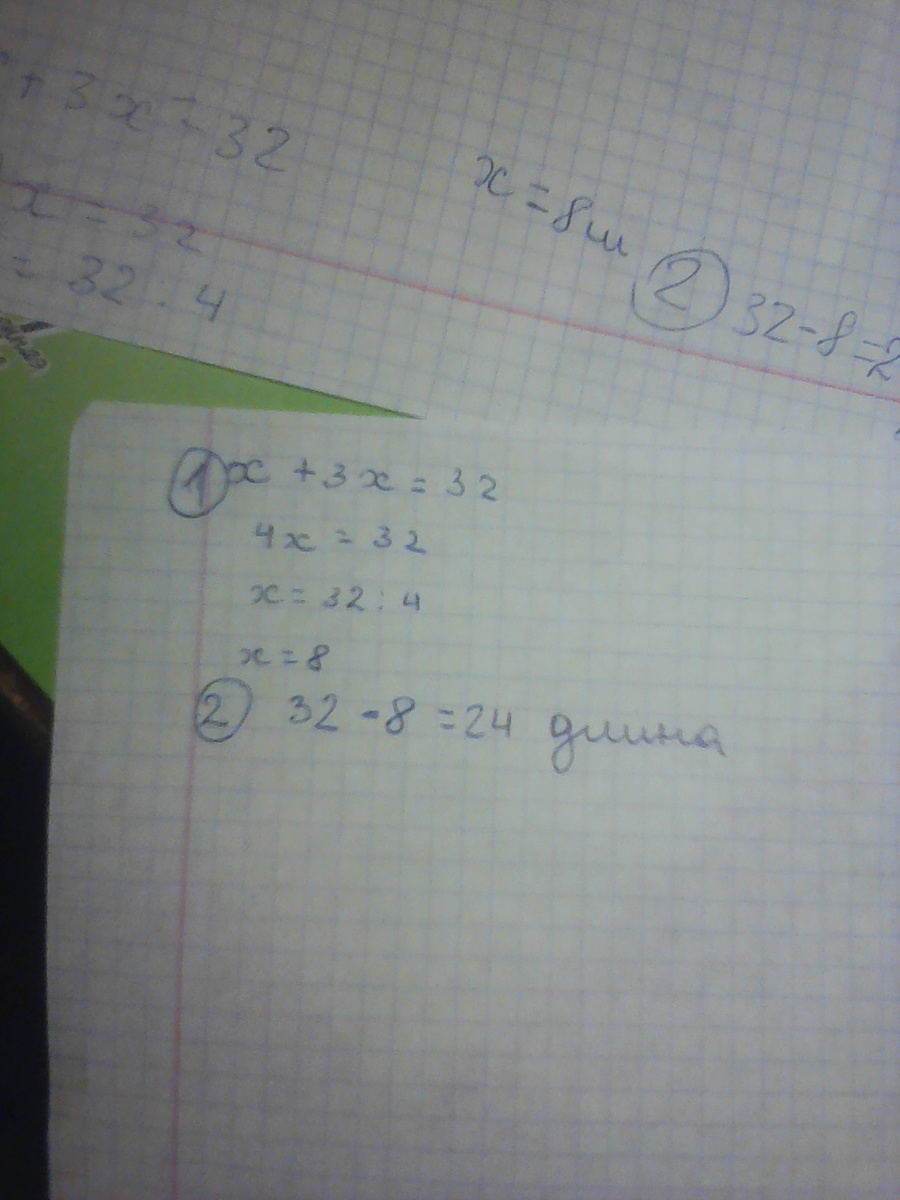 + 3x = 32
x = 32
= 32 : 4
x = 8 ш
2 32 - 8 = 2
1 x + 3x = 32
4x = 32
x = 32 : 4
x = 8
2 32 - 8 = 24 длина